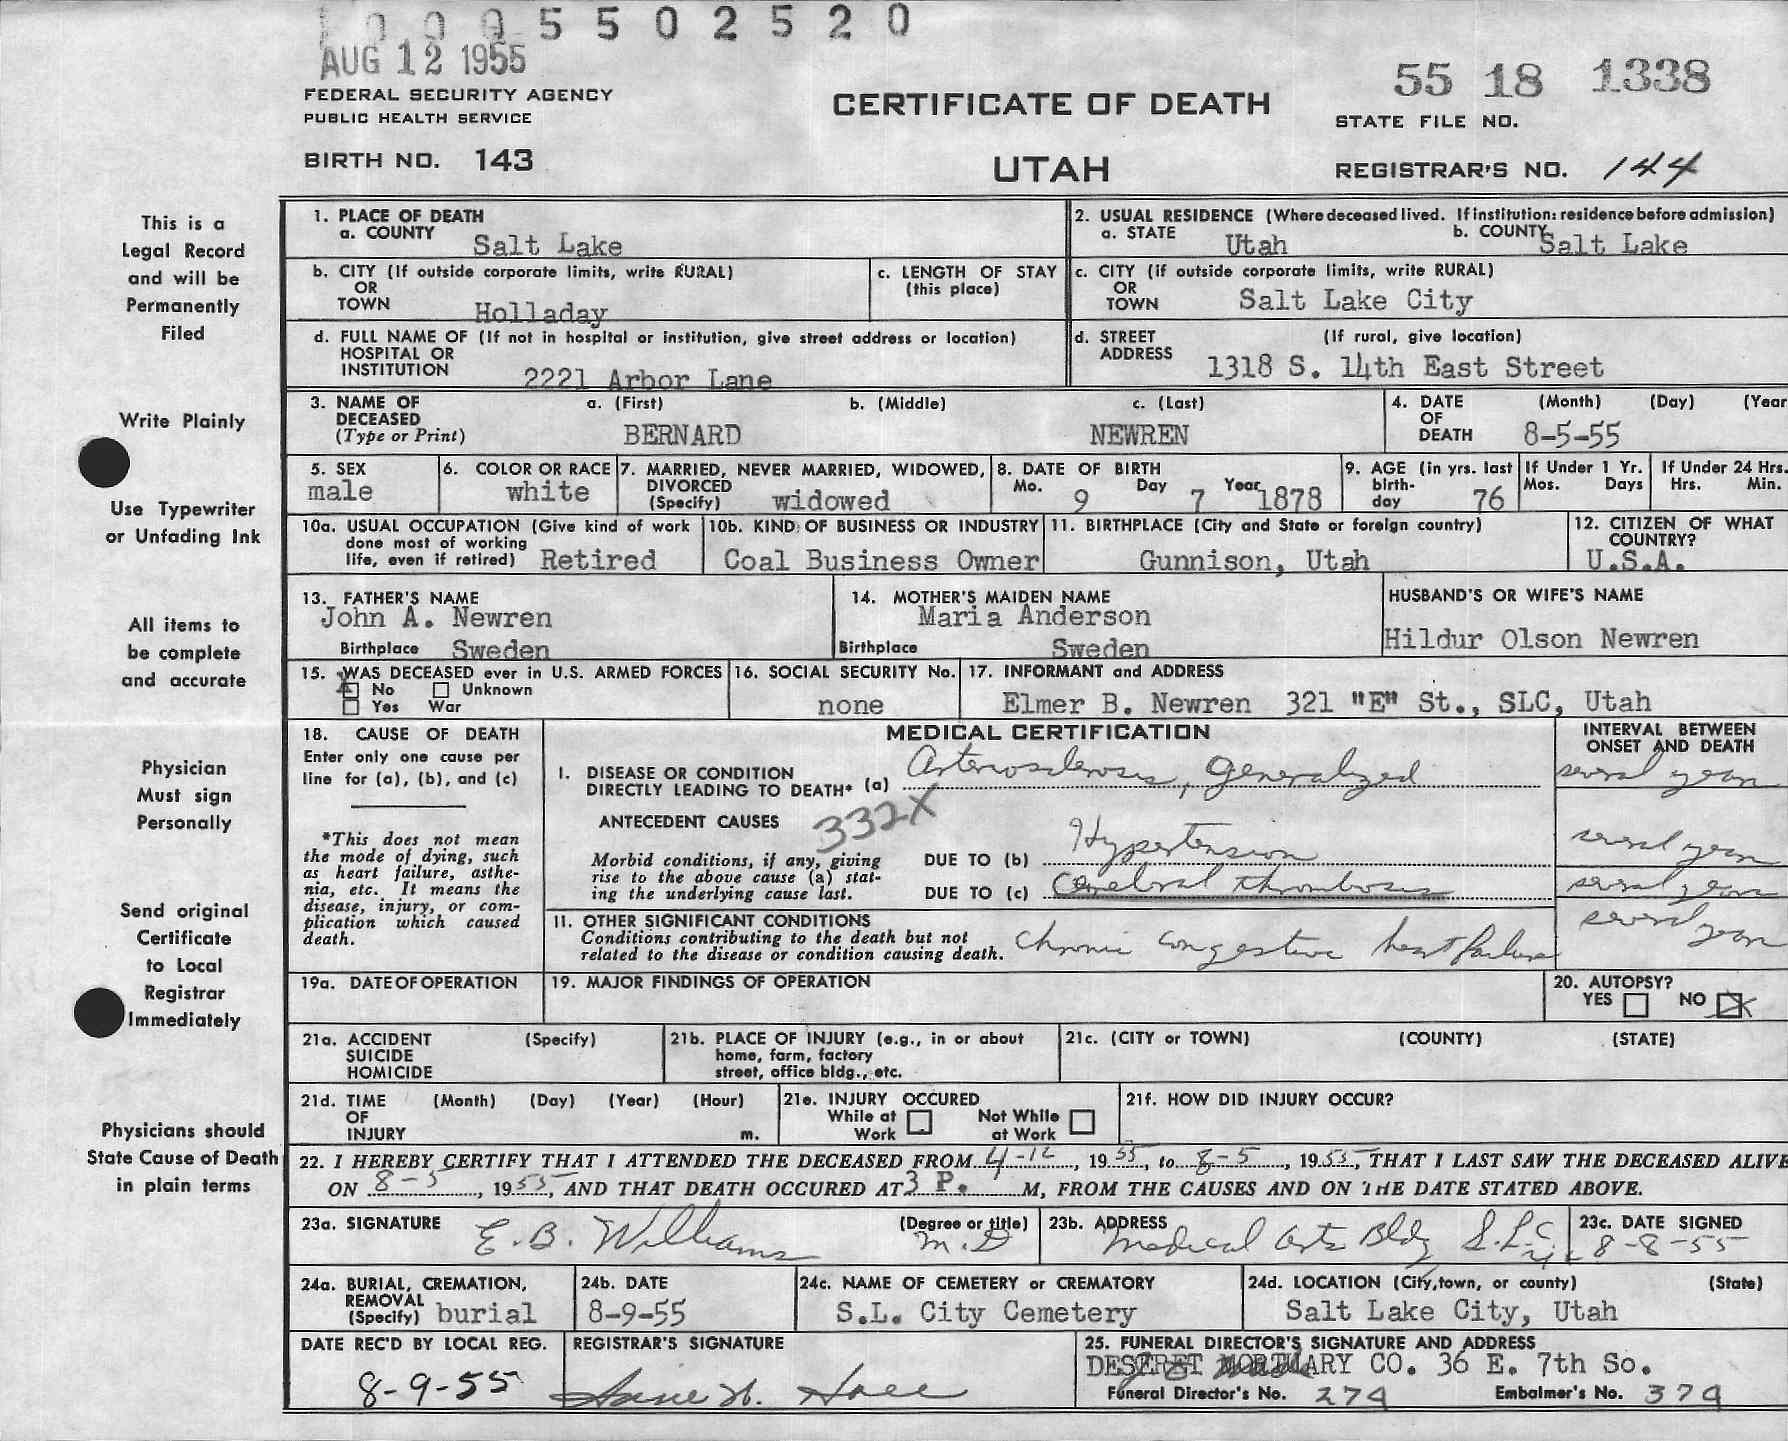 5502520
AUG 12 1955
FEDERAL SECURITY AGENCY
PUBLIC HEALTH SERVICE
BIRTH NO. 143
CERTIFICATE OF DEATH
UTAH
55 18 1338
STATE FILE NO.
REGISTRAR'S NO. 144
This is a
Legal Record
and will be
Permanently
Filed
Write Plainly
Use Typewriter
or Unfading Ink
All items to
be complete
and accurate
Physician
Must sign
Personally
Send original
Certificate
to Local
Registrar
Immediately
Physicians should
State Cause of Death
in plain terms
1. PLACE OF DEATH
a. COUNTY Salt Lake
2. USUAL RESIDENCE (Where deceased lived. If institution: residence before admission)
a. STATE Utah b. COUNTY Salt Lake
b. CITY (If outside corporate limits, write RURAL)
OR
TOWN Holladay
c. LENGTH OF STAY
(this place)
c. CITY (if outside corporate limits, write RURAL)
OR
TOWN Salt Lake City
d. FULL NAME OF (If not in hospital or institution, give street address or location)
HOSPITAL OR
INSTITUTION 2221 Arbor Lane
d. STREET (If rural, give location)
ADDRESS 1318 S. 14th East Street
3. NAME OF a. (First) b. (Middle) c. (Last)
DECEASED
(Type or Print) BERNARD NEWREN
4. DATE (Month) (Day) (Year
OF
DEATH 8-5-55
5. SEX
male
6. COLOR OR RACE
white
7. MARRIED, NEVER MARRIED, WIDOWED,
DIVORCED
(Specify) widowed
8. DATE OF BIRTH
Mo. 9 Day 7 Year 1878
9. AGE (in yrs. last
birth-
day 76
If Under 1 Yr.
Mos. Days
If Under 24 Hrs.
Hrs. Min.
10a. USUAL OCCUPATION (Give kind of work
done most of working
life, even if retired) Retired
10b. KIND OF BUSINESS OR INDUSTRY
Coal Business Owner
11. BIRTHPLACE (City and State or foreign country)
Gunnison, Utah
12. CITIZEN OF WHAT
COUNTRY?
U.S.A.
13. FATHER'S NAME
John A. Newren
Birthplace Sweden
14. MOTHER'S MAIDEN NAME
Maria Anderson
Birthplace Sweden
HUSBAND'S OR WIFE'S NAME
Hildur Olson Newren
15. WAS DECEASED ever in U.S. ARMED FORCES
X No Unknown
Yes War
16. SOCIAL SECURITY No.
none
17. INFORMANT and ADDRESS
Elmer B. Newren 321 "E" St., SLC, Utah
18. CAUSE OF DEATH
Enter only one cause per
line for (a), (b), and (c)
*This does not mean
the mode of dying, such
as heart failure, asthe-
nia, etc. It means the
disease, injury, or com-
plication which caused
death.
MEDICAL CERTIFICATION
INTERVAL BETWEEN
ONSET AND DEATH
I. DISEASE OR CONDITION
DIRECTLY LEADING TO DEATH* (a) Arteriosclerosis, Generalized several years
ANTECEDENT CAUSES 332X
Morbid conditions, if any, giving
rise to the above cause (a) stat-
ing the underlying cause last.
DUE TO (b) Hypertension several years
DUE TO (c) Cerebral thrombosis several years
11. OTHER SIGNIFICANT CONDITIONS
Conditions contributing to the death but not
related to the disease or condition causing death. Chronic congestive heart failure several years
19a. DATE OF OPERATION
19. MAJOR FINDINGS OF OPERATION
20. AUTOPSY?
YES NO X
21a. ACCIDENT (Specify)
SUICIDE
HOMICIDE
21b. PLACE OF INJURY (e.g., in or about
home, farm, factory
street, office bldg., etc.
21c. (CITY or TOWN) (COUNTY) (STATE)
21d. TIME (Month) (Day) (Year) (Hour)
OF
INJURY m.
21e. INJURY OCCURED
While at Not While
Work at Work
21f. HOW DID INJURY OCCUR?
22. I HEREBY CERTIFY THAT I ATTENDED THE DECEASED FROM 4-12, 1955, to 8-5, 1955, THAT I LAST SAW THE DECEASED ALIVE
ON 8-5, 1955, AND THAT DEATH OCCURED AT 3 P. M, FROM THE CAUSES AND ON THE DATE STATED ABOVE.
23a. SIGNATURE (Degree or title)
E. B. Williams M.D
23b. ADDRESS
Medical Arts Bldg S.L.C
23c. DATE SIGNED
8-8-55
24a. BURIAL, CREMATION,
REMOVAL
(Specify) burial
24b. DATE
8-9-55
24c. NAME OF CEMETERY or CREMATORY
S.L. City Cemetery
24d. LOCATION (City, town, or county) (State)
Salt Lake City, Utah
DATE REC'D BY LOCAL REG.
8-9-55
REGISTRAR'S SIGNATURE
25. FUNERAL DIRECTOR'S SIGNATURE AND ADDRESS
DESERET MORTUARY CO. 36 E. 7th So.
Funeral Director's No. 274 Embalmer's No. 379